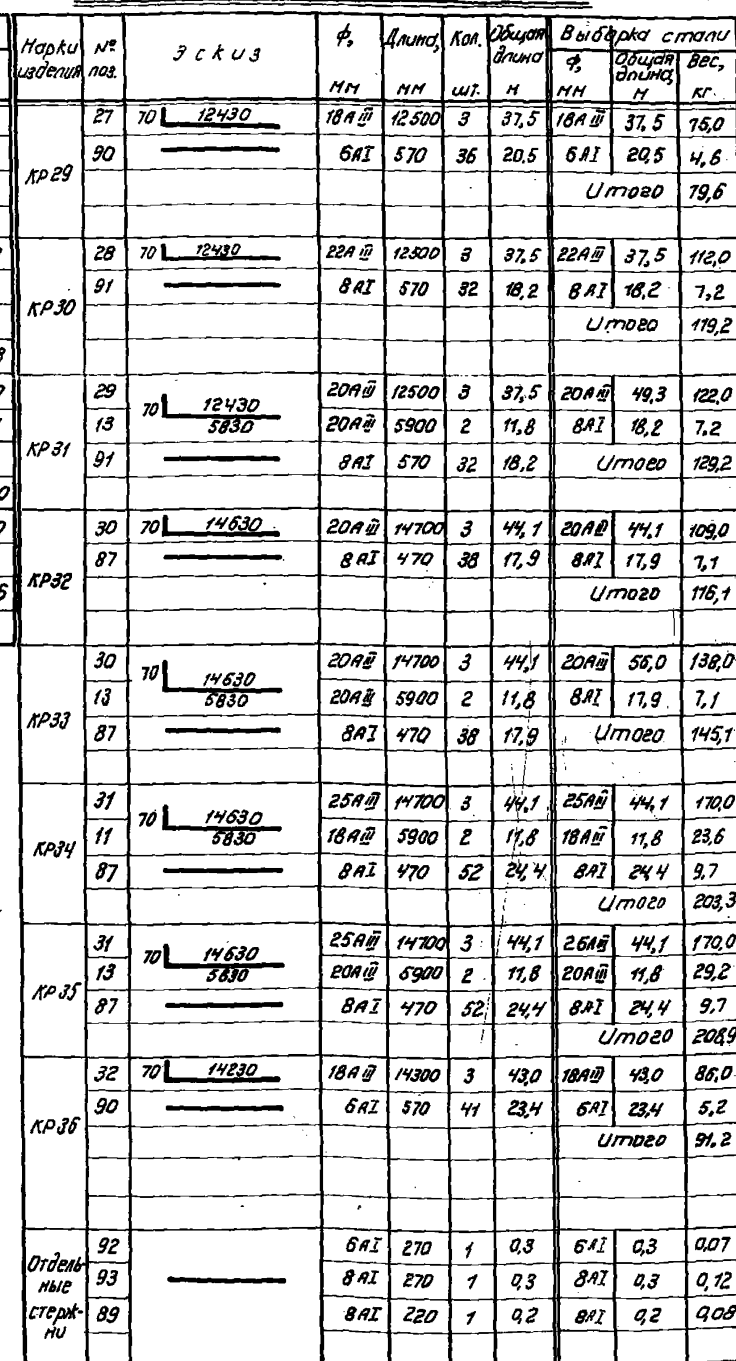 Марки изделия | № поз. | Эскиз | ф, мм | Длина, мм | Кол. шт. | Общая длина м | Выборка стали
ф, мм | Общая длина, м | Вес, кг.
КР29
27 | 70 12430 | 18АIII | 12500 | 3 | 37,5 | 18АIII | 37,5 | 75,0
90 | 6АI | 570 | 36 | 20,5 | 6АI | 20,5 | 4,6
Итого 79,6
КР30
28 | 70 12430 | 22АIII | 12500 | 3 | 37,5 | 22АIII | 37,5 | 112,0
91 | 8АI | 570 | 32 | 18,2 | 8АI | 18,2 | 7,2
Итого 119,2
КР31
29 | 70 12430 | 20АIII | 12500 | 3 | 37,5 | 20АIII | 49,3 | 122,0
13 | 5830 | 20АIII | 5900 | 2 | 11,8 | 8АI | 18,2 | 7,2
91 | 8АI | 570 | 32 | 18,2 | Итого 129,2
КР32
30 | 70 14630 | 20АIII | 14700 | 3 | 44,1 | 20АIII | 44,1 | 109,0
87 | 8АI | 470 | 38 | 17,9 | 8АI | 17,9 | 7,1
Итого 116,1
КР33
30 | 70 14630 | 20АIII | 14700 | 3 | 44,1 | 20АIII | 56,0 | 138,0
13 | 5830 | 20АIII | 5900 | 2 | 11,8 | 8АI | 17,9 | 7,1
87 | 8АI | 470 | 38 | 17,9 | Итого 145,1
КР34
31 | 70 14630 | 25АIII | 14700 | 3 | 44,1 | 25АIII | 44,1 | 170,0
11 | 5830 | 18АIII | 5900 | 2 | 11,8 | 18АIII | 11,8 | 23,6
87 | 8АI | 470 | 52 | 24,4 | 8АI | 24,4 | 9,7
Итого 203,3
КР35
31 | 70 14630 | 25АIII | 14700 | 3 | 44,1 | 25АIII | 44,1 | 170,0
13 | 5830 | 20АIII | 5900 | 2 | 11,8 | 20АIII | 11,8 | 29,2
87 | 8АI | 470 | 52 | 24,4 | 8АI | 24,4 | 9,7
Итого 208,9
КР36
32 | 70 14230 | 18АIII | 14300 | 3 | 43,0 | 18АIII | 43,0 | 86,0
90 | 6АI | 570 | 41 | 23,4 | 6АI | 23,4 | 5,2
Итого 91,2
Отдельные стержни
92 | 6АI | 270 | 1 | 0,3 | 6АI | 0,3 | 0,07
93 | 8АI | 270 | 1 | 0,3 | 8АI | 0,3 | 0,12
89 | 8АI | 220 | 1 | 0,2 | 8АI | 0,2 | 0,08